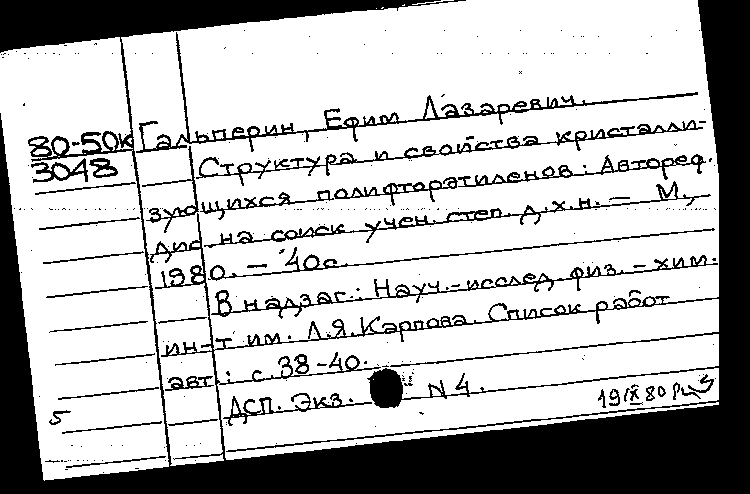 80-50к Гальперин, Ефим Лазаревич.
3048 Структура и свойства кристалли-
зующихся полифторэтиленов: Автореф.
дис. на соиск учен. степ. д.х.н. – М.,
1980. – 40с.
В надзаг.: Науч.-исслед. физ.-хим.
ин-т им. Л.Я.Карпова. Список работ
авт.: с.38-40.
ДСП. Экз. N 4.
5
19 IX 80